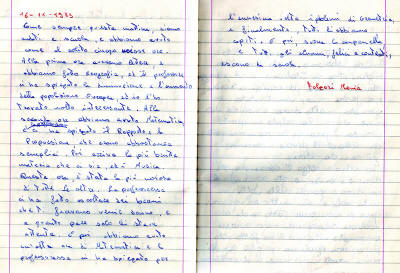 16-11-1989
Come sempre questa mattina, siamo
andati a scuola, e abbiamo avuto
come al solito cinque ore.
Alla prima ora avevamo Etica, e
abbiamo fatto Geografia, ed il professore
ci ha spiegato la diminuzione e l'aumento
della popolazione Europea, ed io l'ho
trovato molto interessante. Alla
seconda ora abbiamo avuto Matematica,
ci ha spiegato il Rapporto e la
Proporzione che erano abbastanza
semplici. Poi arriva la più brutta
materia che a me è Musica
Questa ora è stata la più noiosa
di tutte le altre. La professoressa
ci ha fatto ascoltare dei brani
che facevano venire sonno, e
a quanto pare solo io stavo
attenta. E poi abbiamo avuto
un'altra ora di Matematica e la
professoressa ci ha spiegato per
l'ennesima volta i problemi di Geometria,
e finalmente, tutti li abbiamo
capiti. E poi, suona la campanella
e tutti gli alunni, felici e contenti,
escono da scuola.
Maria